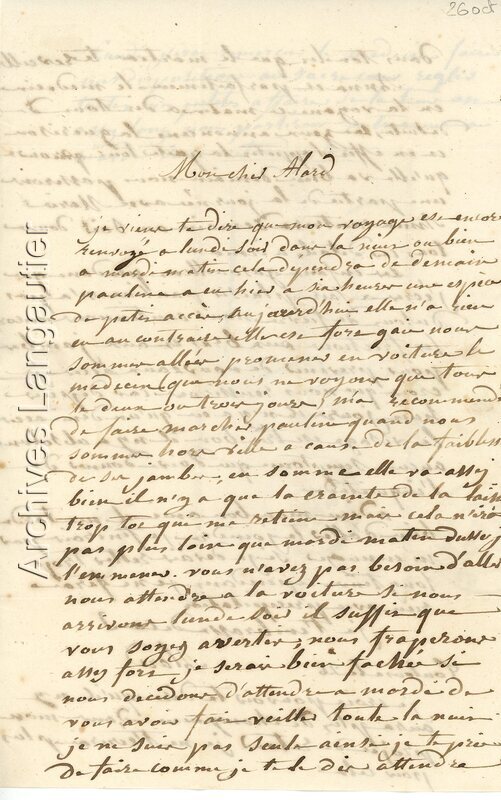 26 oct
Mon cher Alard
je viens te dire que mon voyage est encore
renvoyé a lundi soir dans la nuit ou bien
a mardi matin cela dépendra de demain
pauline a eu hier a sa heures une espèce
de petit accès, aujourdhui elle n'a rien
eu au contraire elle est fort gaie nous
sommes allées promener en voiture le
médecin (que nous ne voyons que tous
le deux ou trois jours) ma recommendé
de faire marcher pauline quand nous
sommes hors ville a cause de la faibless
de ses jambes, en somme elle va assez
bien il n'y a que la crainte de la laisse
trop tot qui me retient mais cela n'ira
pas plus loin que mardi matin dussej
l'enmener. vous n'avez pas besoin d'alle
nous attendre a la voiture si nous
arrivons lundi soir il suffit que
vous soyez avertis, nous fraperons
assez fort je serais bien fachée si
nous decidons d'attendre a mardi de
vous avoir fait veiller toute la nuit
je ne suis pas seule ainsi je te prie
de faire comme je te le dis attendre
Archives Langautier